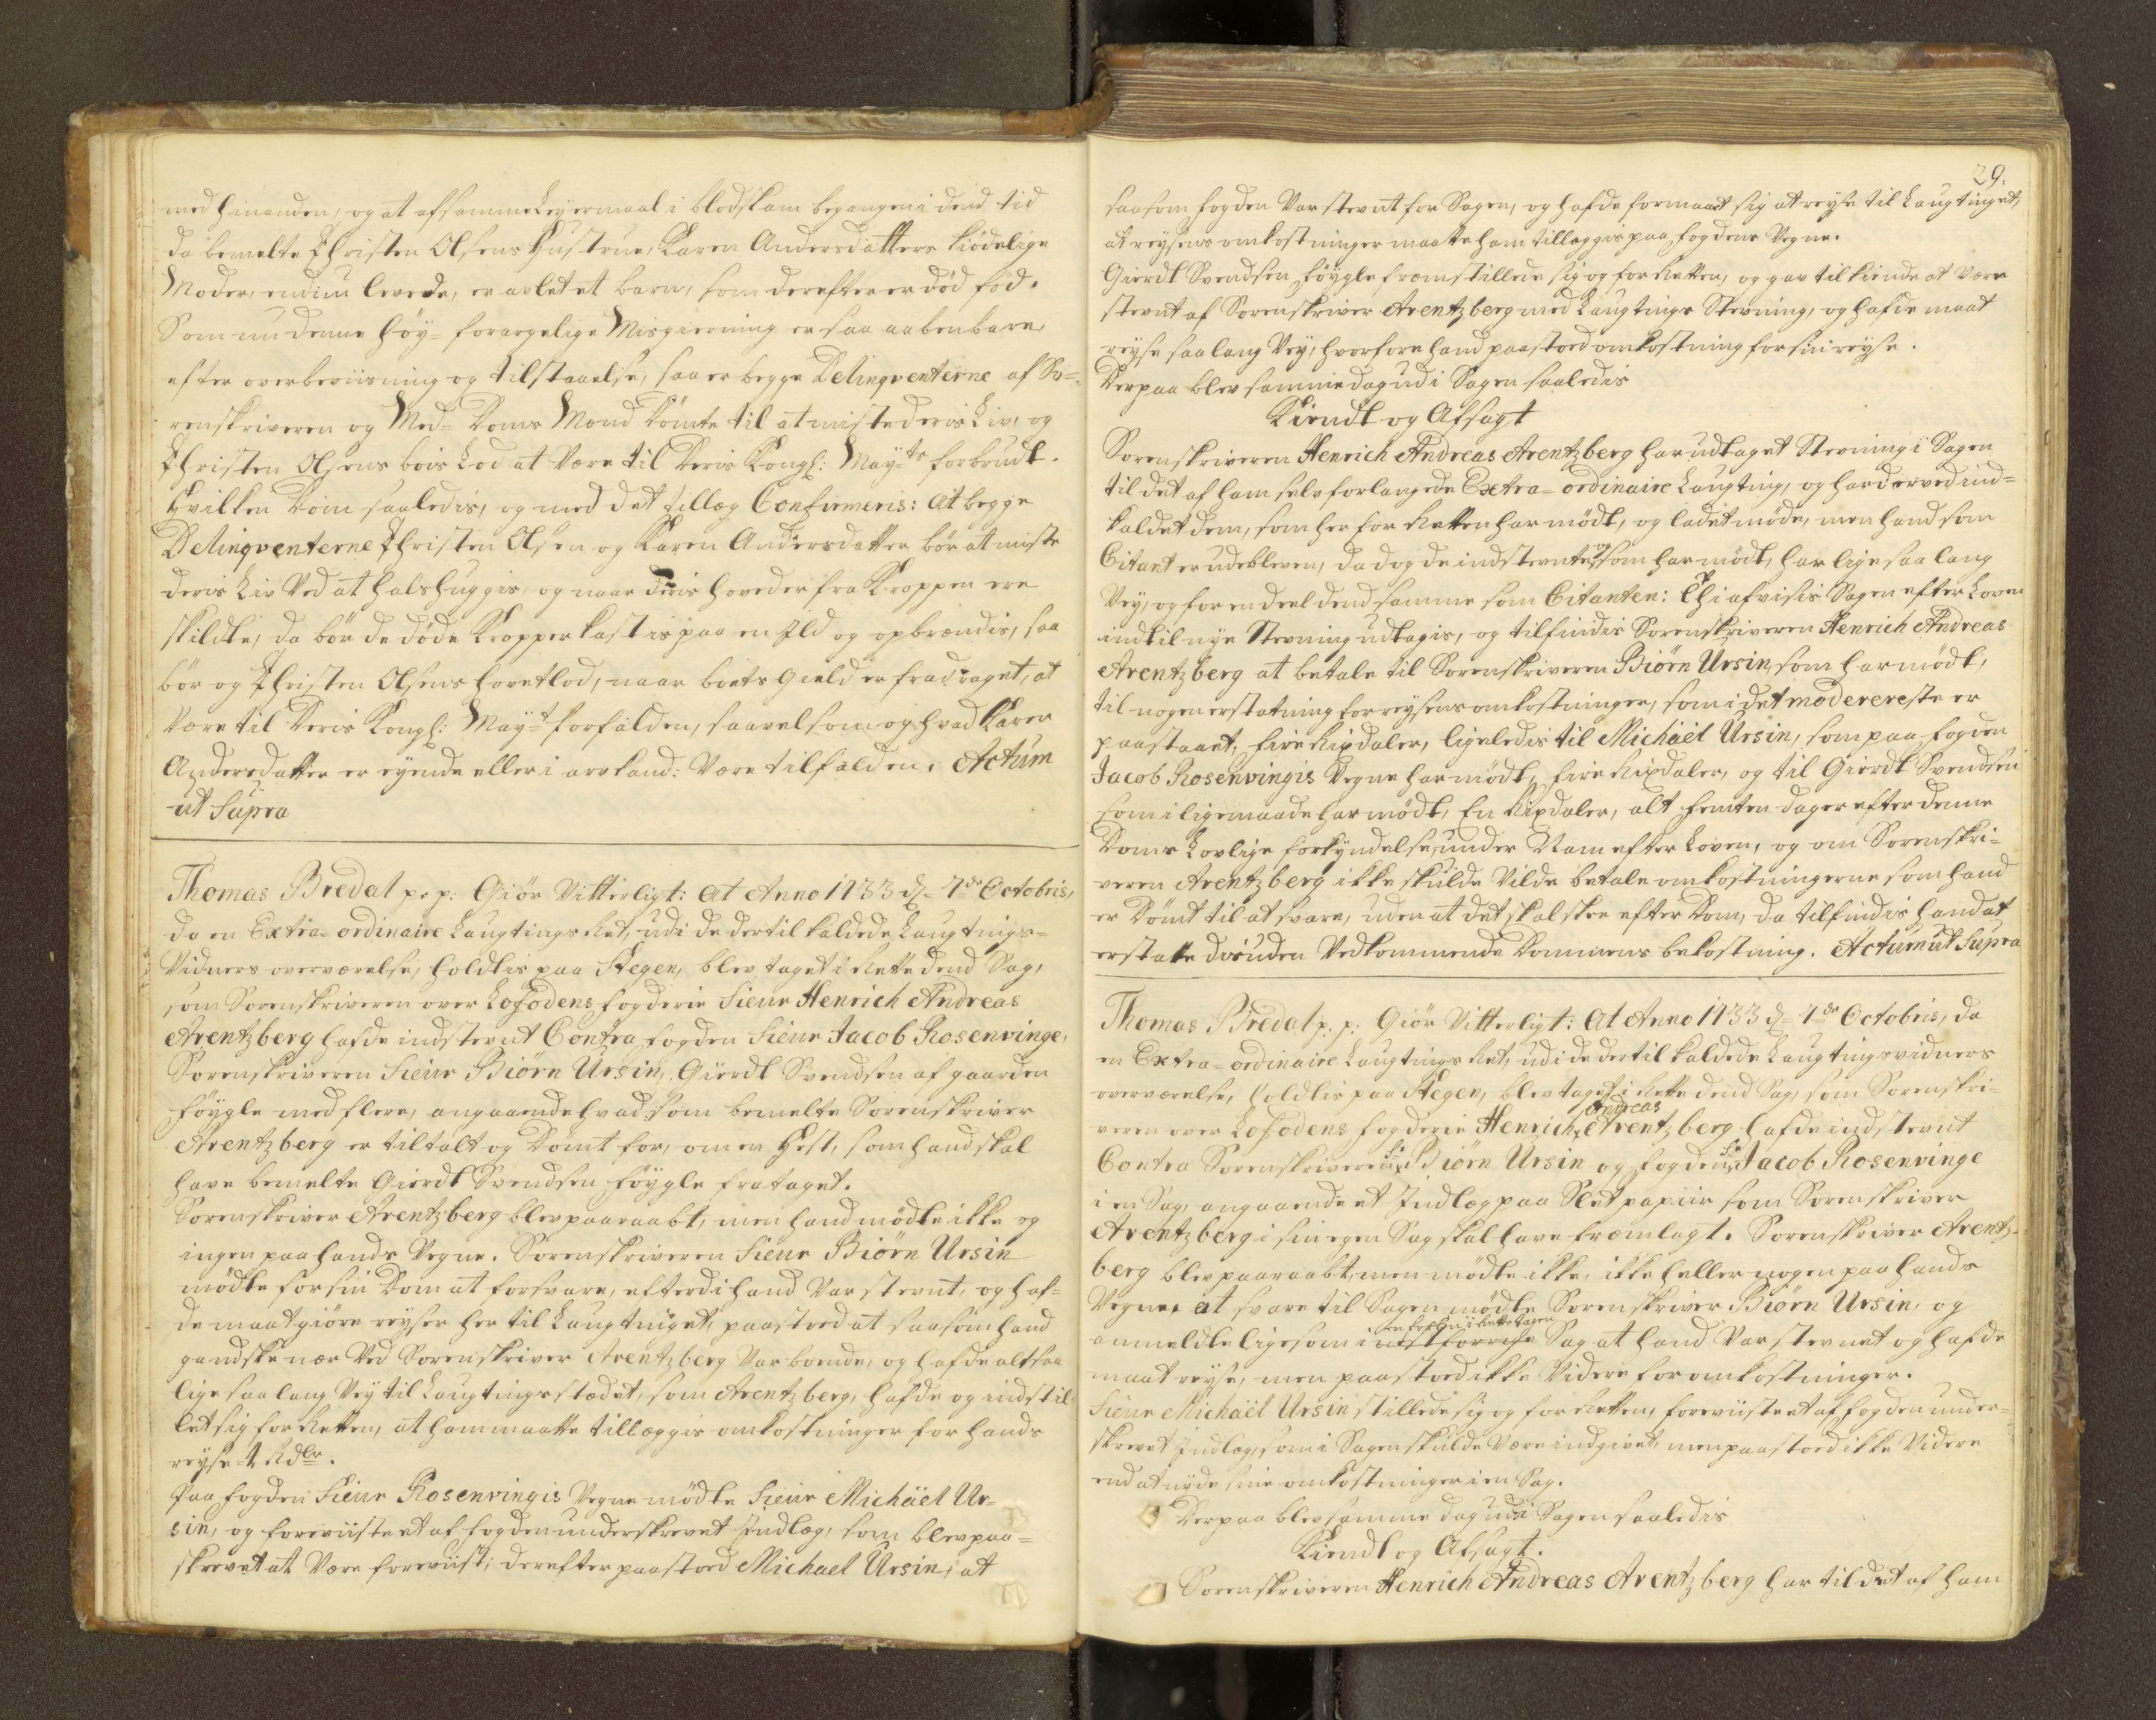 med hinanden, og at af samme Leyermaal i blodskam begangen i dend tid
da bemelte Christen Olsens Hustrue, Karen Andersdatters kiødelige
Moder, endnu levede, er avlet et barn, som derefter er død fød.
Som nu denne høy-forargelige Misgierning er saa aabenbare,
efter overbeviisning og tilstaaelse, saa er begge Delinqventerne af So-
renskriveren og Med-Doms Mænd dømte til at miste deris Liv, og
Christen Olsens boes Lod at være til Deris Kongl: May-ts forbrudt.
Hvilken Dom saaledis, og med det tillæg Confirmeris: At begge
Delinqventerne Christen Olsen og Karen Andersdatter bør at miste
deris Liv ved at halshuggis, og naar deris hoveder fra Kroppen ere
skildte, da bør de døde Kropper kastis paa en Ild og opbrendis, saa
bør og Christen Olsens hovetlod, naar boets Gield er fradraget, at
være til Deris Kongl: May-t forfalden, saavelsom og hvad Karen
Andersdatter er eyende eller i arv kand: være tilfalden. Actum
ut Supra
Thomas Bredal p. p: Giør Vitterligt: At Anno 1733 d. 7de Octobris,
da en Extra-ordinaire Laugtings Ret, udi de dertil kaldede Laugtings-
Vidners overværelse, holdtis paa Stegen, blev taget i Rette dend Sag,
som Sorenskriveren over Lofodens fogderie Sieur Henrich Andreas
Arentzberg hafde indstevnt Contra fogden Sieur Jacob Rosenvinge,
Sorenskriveren Sieur Biörn Ursin, Gierdt Svendsen af gaarden
Föygle med flere, angaaende hvad som bemelte Sorenskriver
Arentzberg er tiltalt og Dømt for, om en Hest, som hand skal
have bemelte Gierdt Svendsen Föygle frataget.
Sorenskriver Arentzberg blev paaraabt, men hand mødte ikke og
ingen paa hands Vegne. Sorenskriveren Sieur Biörn Ursin
mødte for sin Dom at forsvare, efterdi hand var stevnt, og haf-
de maat giøre reyser her til Laugtinget, paastoed at saasom hand
gandske nær ved Sorenskriver Arentzberg var boende, og hafde altsaa
lige saa lang Vey til Laugtings stædet, som Arentzberg, hafde og indstil-
let sig for Retten, at ham maatte tillæggis omkostninger for hands
reyse 4 Rdlr.
Paa fogden Sieur Rosenvingis Vegne mødte Sieur Michäel Ur-
sin, og foreviiste et af fogden underskrevet Indlæg, som blev paa-
skrevet at være foreviist, derefter paastoed Michael Ursin, at
29.
saasom fogden var stevnt for Sagen, og hafde formaaet sig at reyse til Laugtinget,
at reysens omkostninger maatte ham tillæggis paa fogdens Vegne.
Gierdt Svendsen Föygle fremstillede sig og for Retten, og gav tilkiende at være
stevnt af Sorenskriver Arentzberg med Laugtings Stevning, og hafde maat
reyse saa lang Vey, hvorfore hand paastoed omkostning for sin reyse.
Derpaa blev samme dag udi Sagen saaledis
Kiendt og Afsagt
Sorenskriveren Henrich Andreas Arentzberg har udtaget Stevning i Sagen
til det af ham selv forlangede Extra-ordinaire Laugting, og har derved ind-
kaldet dem, som her for Retten har mødt, og ladet møde, men hand som
Citant er udebleven, da dog de indstevnte, og som har mødt, har lige saa lang
Vey, og for en deel dend samme som Citanten: Thi afvisis Sagen efter Loven
indtil nye Stevning udtagis, og tilfindis Sorenskriveren Henrich Andreas
Arentzberg at betale til Sorenskriveren Biörn Ursin, som har mødt,
til nogen erstatning for reysens omkostninger, som i det moderereste er
paastaaet, fire Rixdaler, ligeledis til Michäel Ursin, som paa fogden
Jacob Rosenvingis Vegne har mødt, fire Rixdaler, og til Gierdt Svendsen
som i ligemaade har mødt, En Rixdaler, alt femten dager efter denne
Doms Lovlige forkyndelse, under Nam efter Loven, og om Sorenskri-
veren Arentzberg ikke skulde vilde betale omkostningerne som hand
er Dømt til at svare, uden at det skal skee efter Dom, da tilfindis hand at
erstatte desuden Vedkommende Dommens bekostning. Actum ut Supra
Thomas Bredal p. p. Giør Vitterligt: At Anno 1733 d. 7de Octobris, da
en Extra-ordinaire Laugtings Ret, udi de dertil kaldede Laugtingsvidners
overværelse, holdtis paa Stegen, blev taget i Rette dend Sag, som Sorenskri-
veren over Lofodens fogderie Henrich Andreas Arentzberg hafde indstevnt
Contra Sorenskriveren Sr Biörn Ursin og fogden Sr Jacob Rosenvinge
i en Sag, angaaende et Indlæg paa Slet papiir som Sorenskriver
Arentzberg i sin egen Sag skal have fremlagt. Sorenskriver Arentz-
berg blev paaraabt, men mødte ikke, ikke heller nogen paa hands
Vegne. At svare til Sagen mødte Sorenskriver Biörn Ursin, og
anmeldte ligesom i nest forrige Sag at hand var stevnet og hafde
maat reyse, men paastoed ikke Videre for omkostninger.
Sieur Michäel Ursin stillede sig og for Retten, foreviiste et af fogden under-
skrevet Indlæg, som i Sagen skulde være indgivet, men paastoed ikke Videre
end at nyde sine omkostninger i en Sag.
Derpaa blev samme dag udi Sagen saaledis
Kiendt og Afsagt.
Sorenskriveren Henrich Andreas Arentzberg har til det af ham